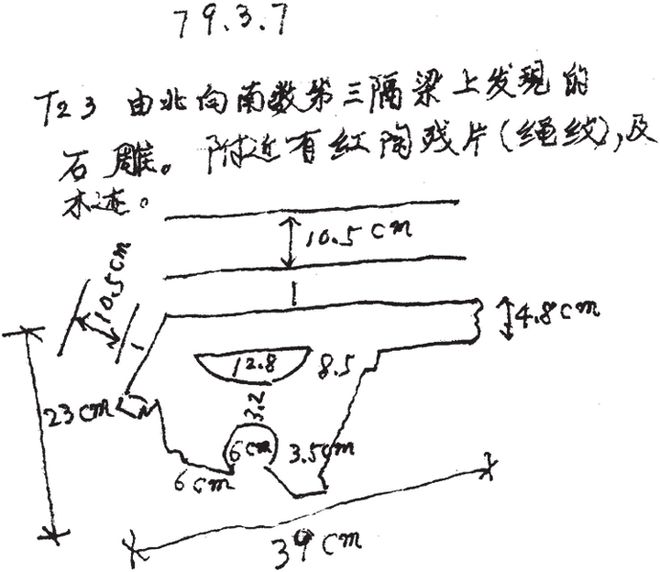 79.3.7
T23 由北向南数第三隔梁上发现的
石雕。附近有红陶残片(绳纹),及
木迹。
10.5cm
10.5cm
4.8cm
12.8
8.5
23cm
3.2
6cm
3.5cm
6cm
39cm